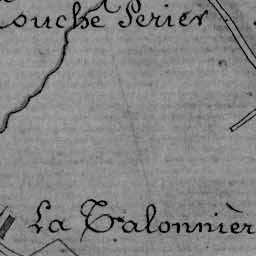 ouche Perier
La Talonnièr